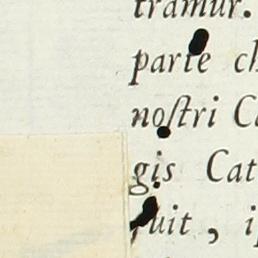 tramur.
parte ch
noſtri Ca
gis Cat
fuit , ip